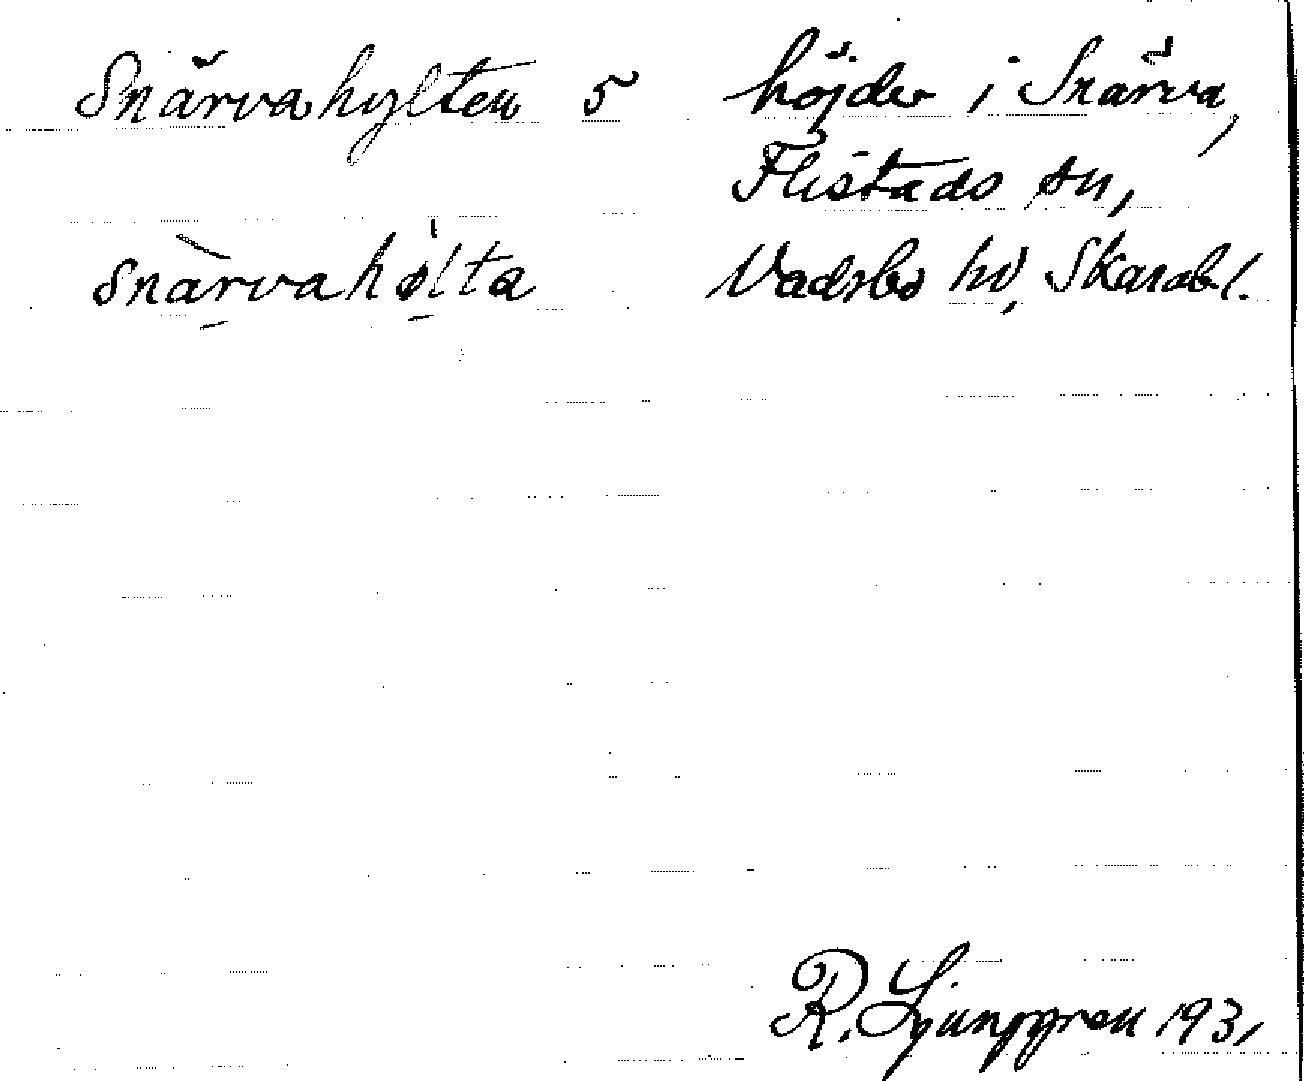 Snärvahylten 5 höjder i Snärva,
Flistads sn,
snàrvahølta Vadsbo hd, Skarab l.
R. Ljunggren 1931